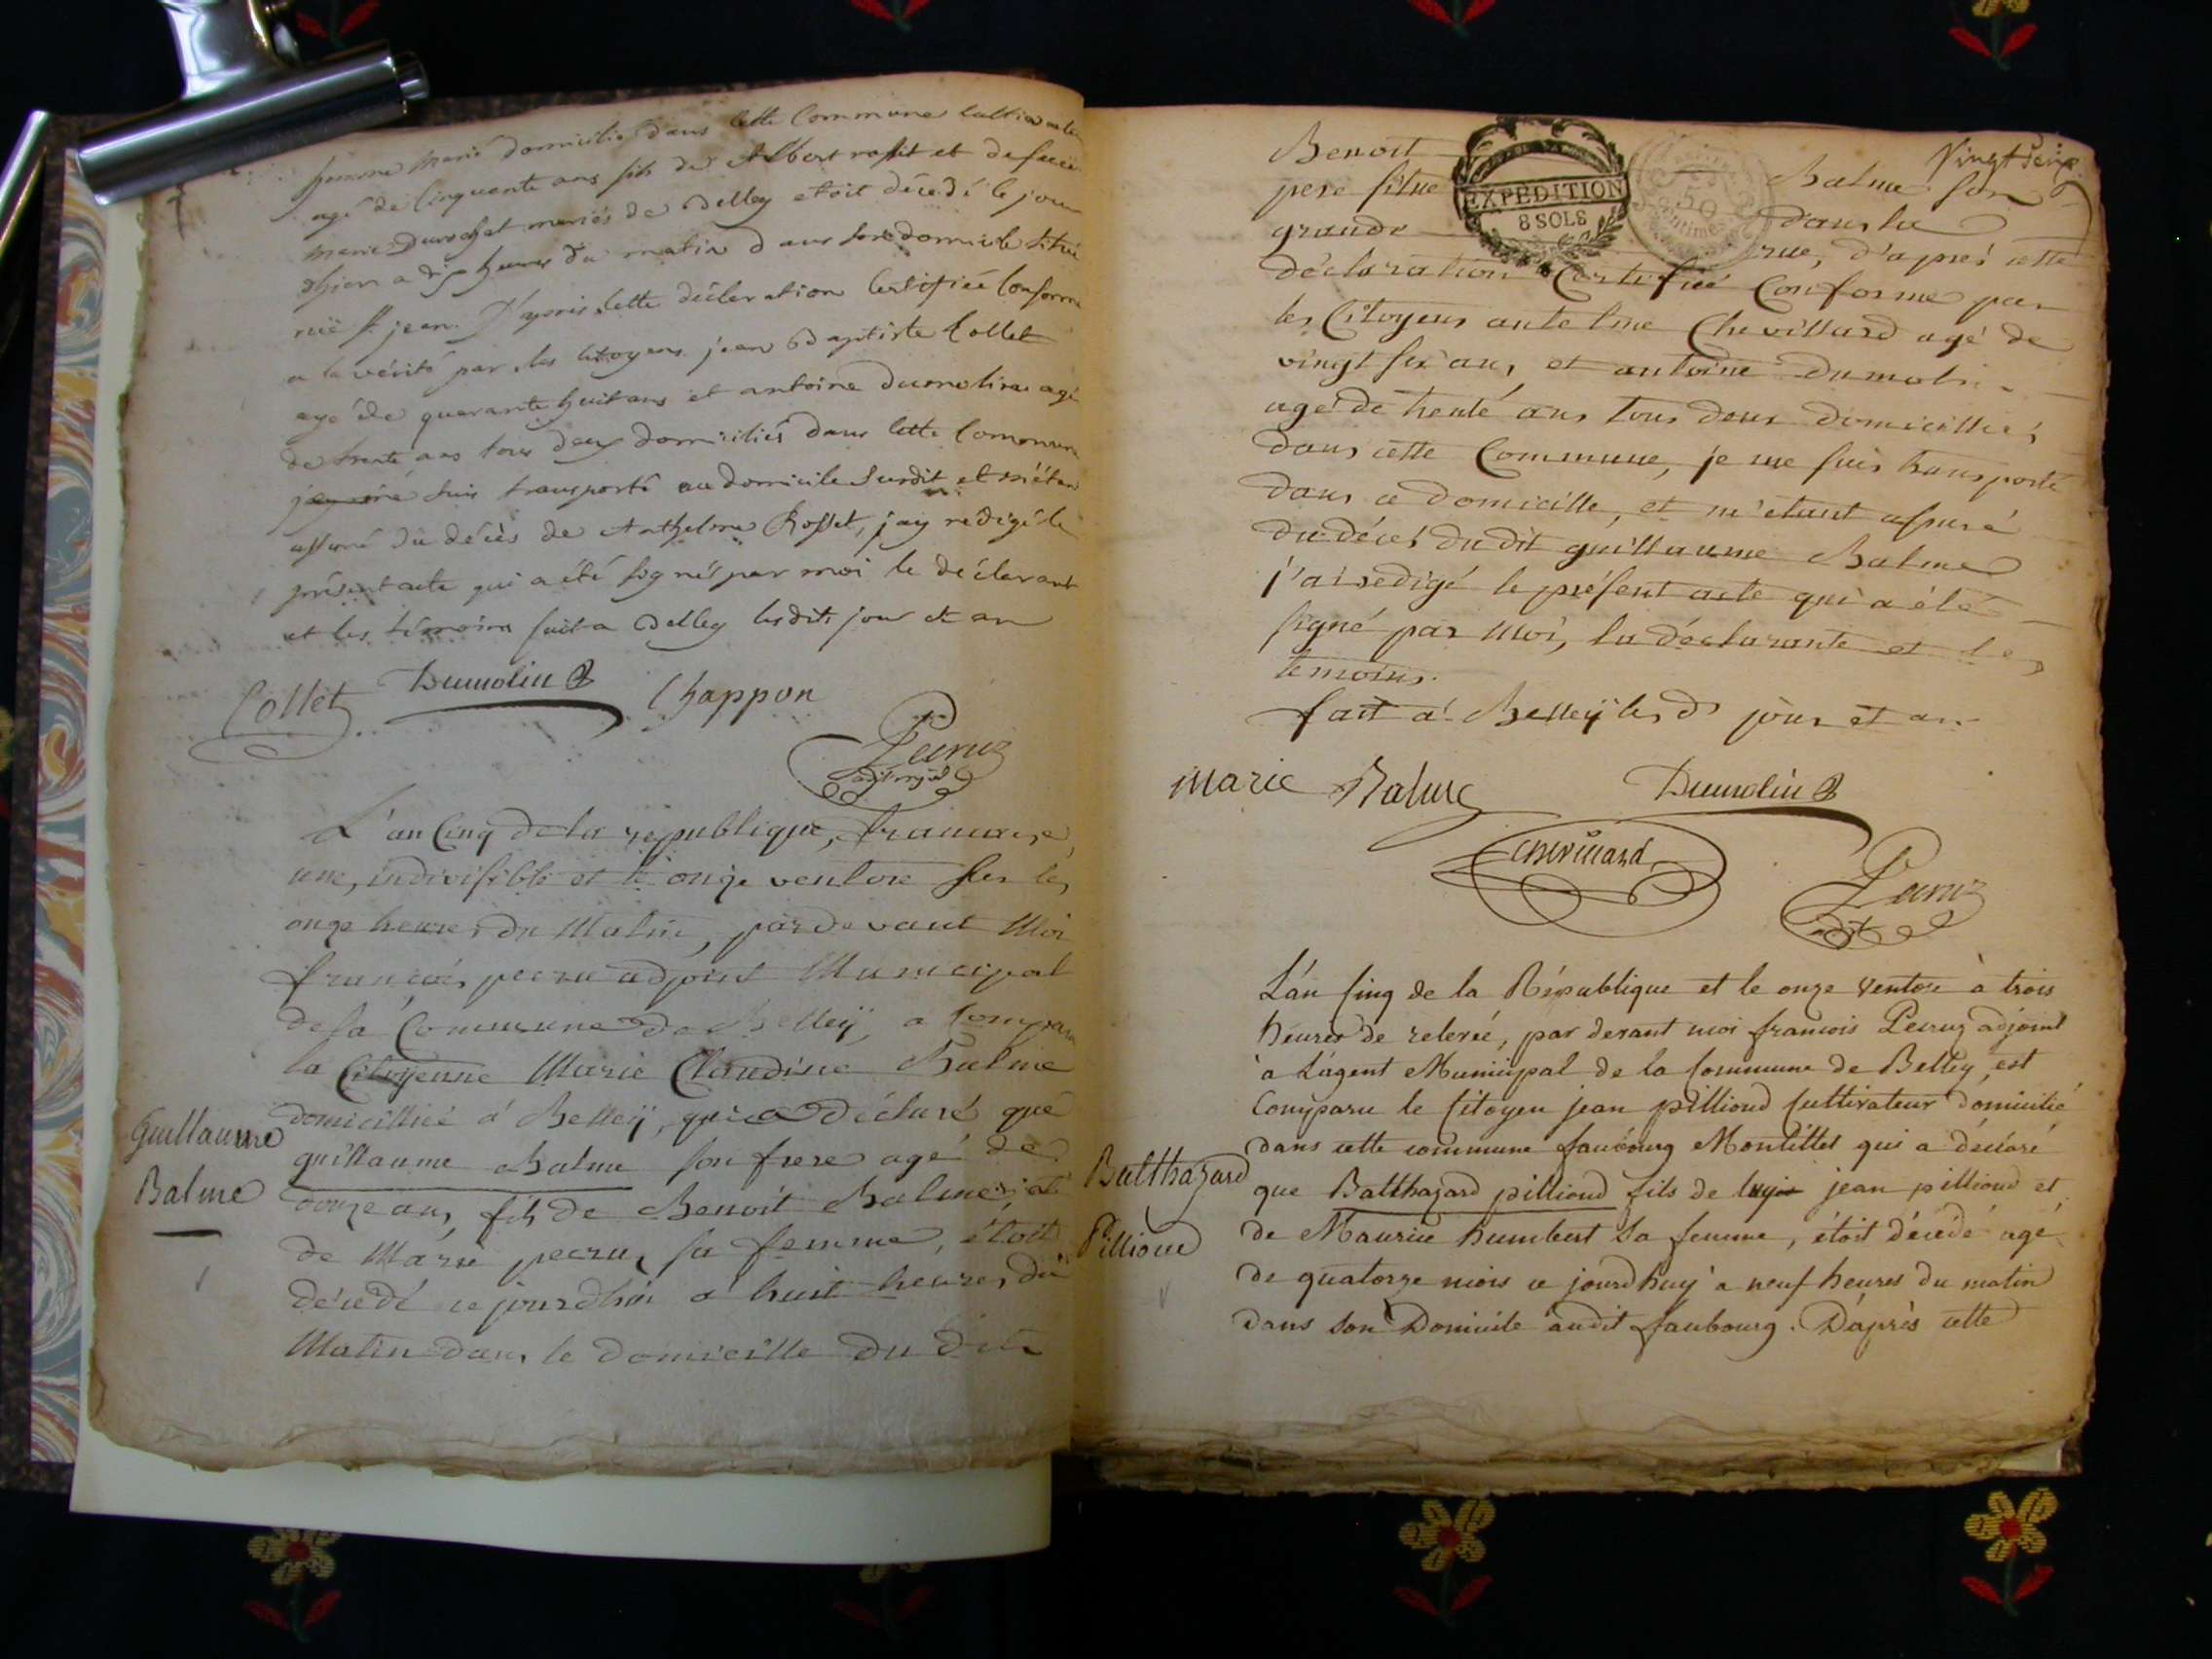 homme marié domicilié dans cette Commune
agé de Cinquante ans fils de Albert rosset et de feue
marie mariés de Belley etoit décedé le jour
d'hier a dix heures du matin dans son domicile situé
rüe St. jean. D'après cette déclaration Certifiée Conforme
a la vérité par les Citoyens jean Baptiste Collet
agé de quarante huit ans et antoine Dumolin agé
de trente ans tous deux domiciliés dans cette Commune
je me suis transporté au domicile Susdit et m'étant
assuré du décès de Anthelme Rosset, j'ay rédigé le
présent acte qui a été signé par moi le déclarant
et les témoins fait a Belley lesdits jour et an
Collet Dumolin Chappon
Pecruz
adjt. mpal
L'an Cinq de la republique, francaise,
une, indivisible et le onze ventose sur les
onze heures du Matin, pardevant Moi
francois pecru adjoint Municipal
de la Commune de Belleÿ, a Comparu
la Citoyenne Marie Claudine Balme
domicilliée a Belleÿ, qui a Déclaré que
Guillaume
Balme
guillaume Balme son frere agé de
douze ans, fils de Benoit Balme, et
de Marie pecru, sa femme, étoit
décedé ce jourdhui a huit heures du
Matin dans le domicille du dit
Vingt Seix
Benoit Balme son
pere situe dans la
grande rue, d'aprés cette
EXPEDITION
8 SOLS
50
Centimes
déclaration Certifiée Conforme par
les Citoyens antelme Chevillard agé de
vingt six ans, et antoine Dumolin
agé de trente ans tous deux domicilliés
dans cette Commune, je me suis transporté
dans ce domicille, et m'etant assuré
du décés dudit guillaume Balme
j'ai redigé le présent acte qui a été
signé par Moi, la déclarante et les
temoins.
fait a Belleÿ les d. jour et an
Marie Balme Dumolin
chevillard
Pecruz
adjt
L'an Cinq de la République et le onze Ventose à trois
heures de relevée, par devant moi francois Pecruz adjoint
à L'agent Municipal de la Commune de Belley, est
Comparu le Citoyen jean pillioud Cultivateur domicilié
dans cette commune faubourg Montillet qui a déclaré
Balthazard
Pillioud
que Balthazard pillioud fils de luy jean pillioud et
de Maurice humbert Sa femme, étoit décédé agé
de quatorze mois ce jourdhuy à neuf heures du matin
dans son Domicile audit faubourg. D'après cette